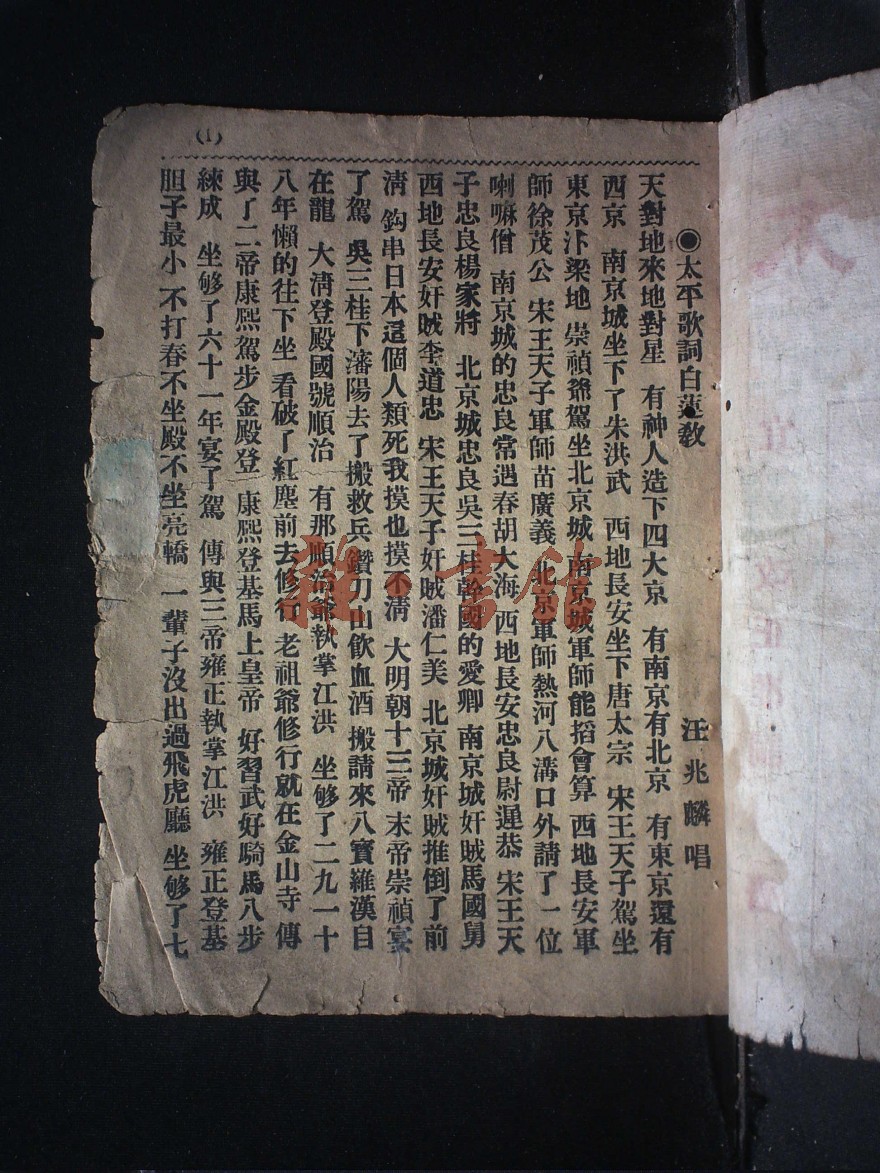 (1)
◉太平歌詞白蓮教
汪兆麟唱
天對地來地對星 有神人造下四大京 有南京有北京 有東京還有
西京 南京城坐下了朱洪武 西地長安坐下唐太宗 宋王天子駕坐
東京汴梁地 崇禎爺駕坐北京城 南京城軍師能掐會算 西地長安軍
師徐茂公 宋王天子軍師苗廣義 北京軍師熱河八溝口外請了一位
喇嘛僧 南京城的忠良常遇春胡大海 西地長安忠良尉遲恭 宋王天
子忠良楊家將 北京城忠良吳三桂幹國的愛卿 南京城奸賊馬國舅
西地長安奸賊李道忠 宋王天子奸賊潘仁美 北京城奸賊推倒了前
清 鈎串日本這個人類死我摸也摸不清 大明朝十三帝 末帝崇禎宴
了駕 吳三桂下瀋陽去了搬救兵 鑽刀山飲血酒 搬請來八寶羅漢自
在龍 大清登殿國號順治 有那順治爺執掌江洪 坐够了二九一十
八年懶的往下坐 看破了紅塵前去修行 老祖爺修行就在金山寺 傳
與了二帝康熙駕步金殿登 康熙登基馬上皇帝 好習武好騎馬八步
練成 坐够了六十一年宴了駕 傳與三帝雍正執掌江洪 雍正登基
胆子最小 不打春不坐殿不坐亮轎 一輩子沒出過飛虎廳 坐够了七
雜·書館